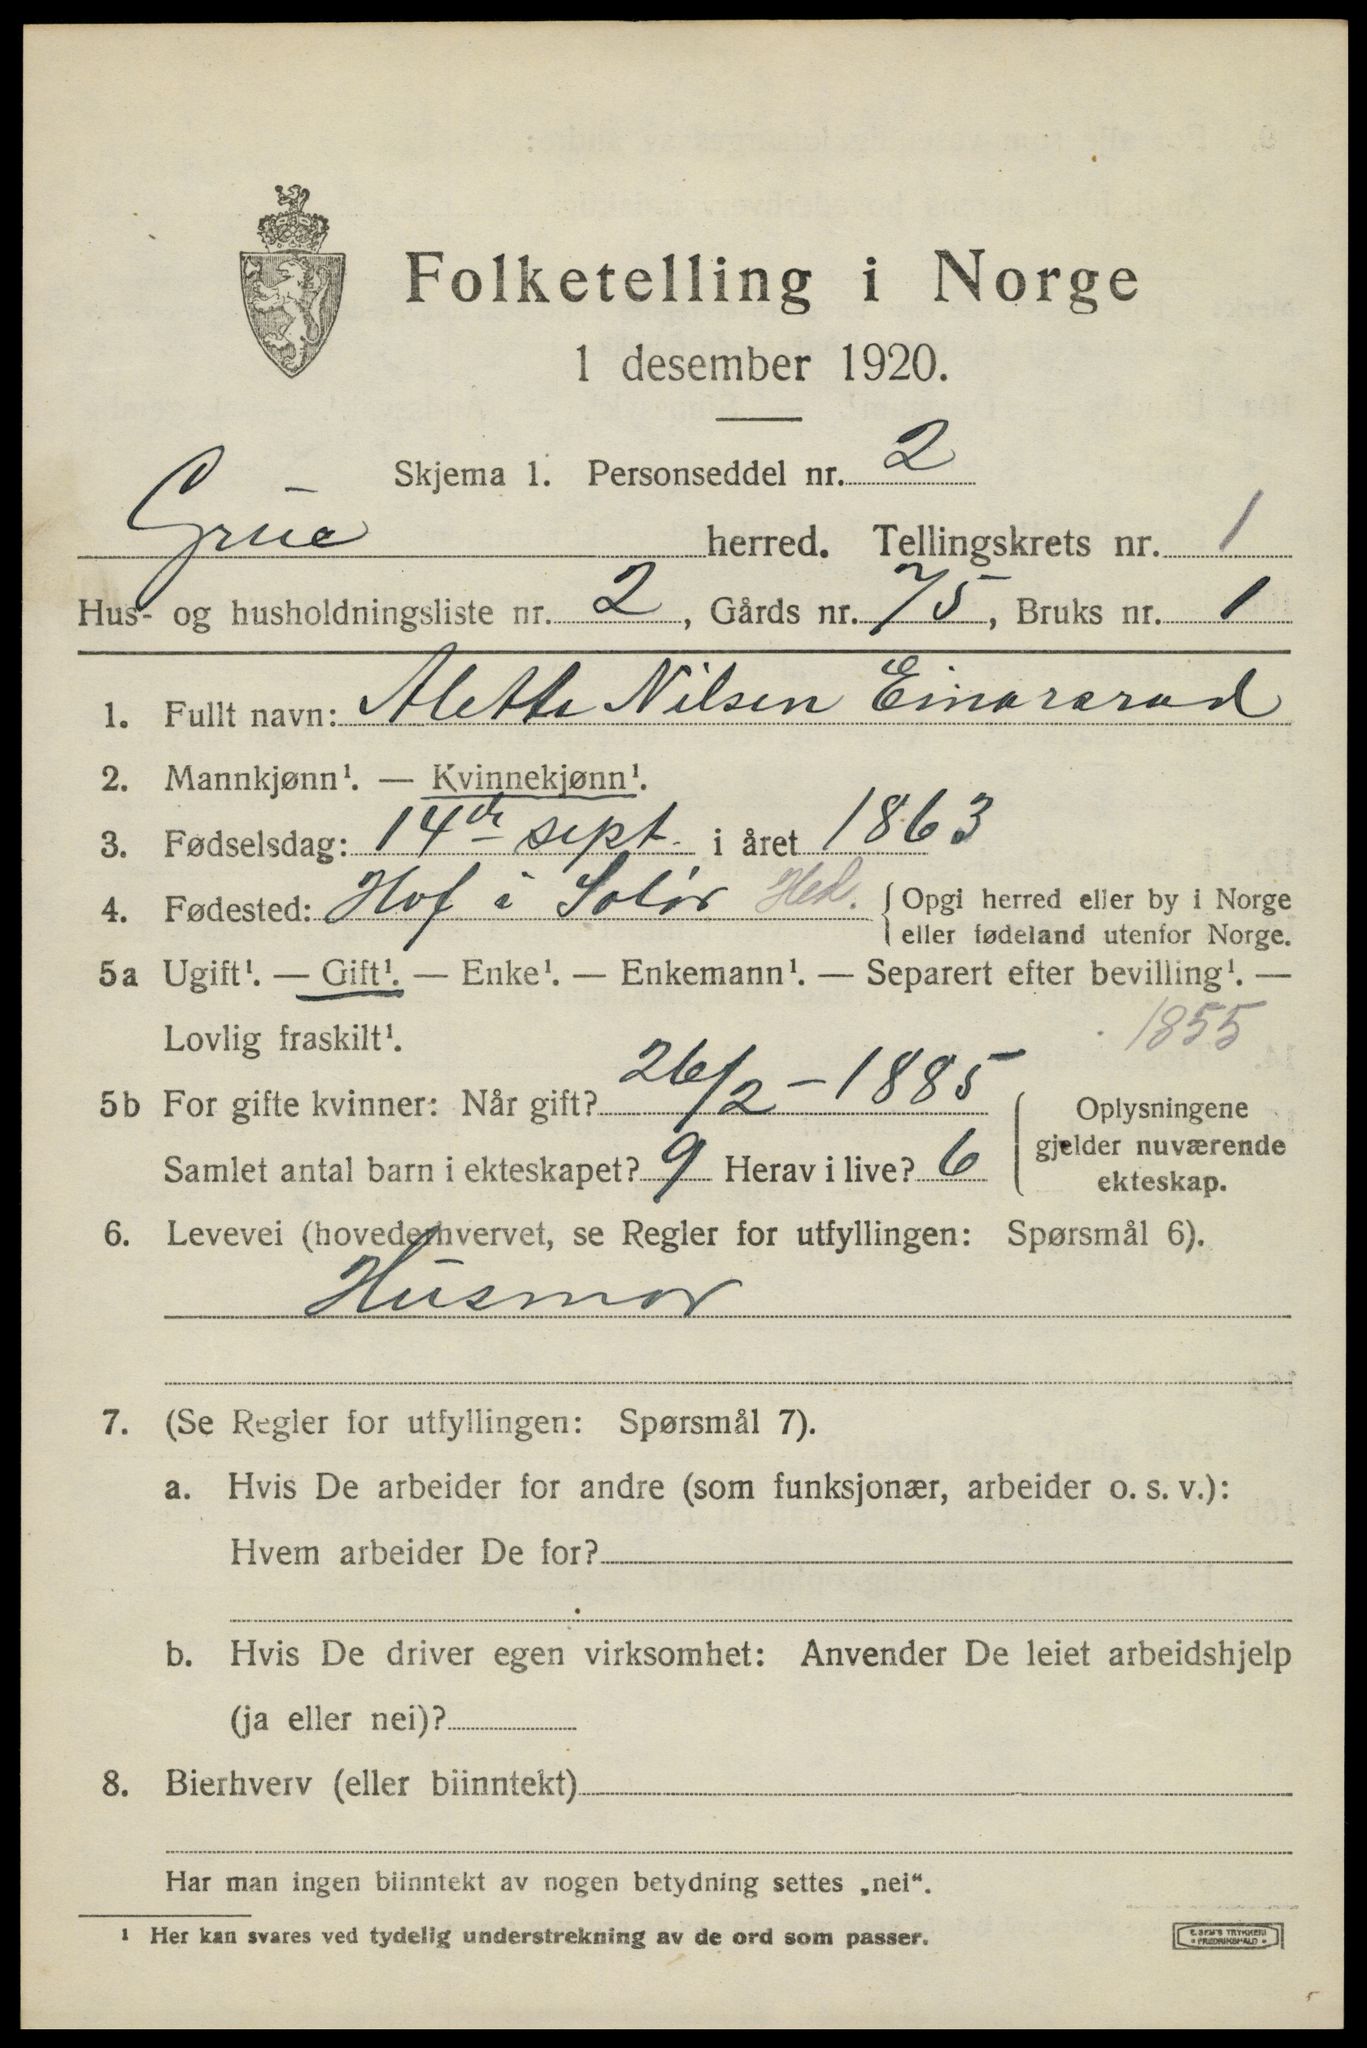 Folketelling i Norge
1 desember 1920.
Skjema 1. Personseddel nr. 2
Grue herred. Tellingskrets nr. 1
Hus- og husholdningsliste nr. 2, Gårds nr. 75, Bruks nr. 1
1. Fullt navn: Alette Nilsen Einarsrud
2. Mannkjønn¹. — Kvinnekjønn¹.
3. Fødselsdag: 14de sept. i året 1863
4. Fødested: Hof i Solør Hed. { Opgi herred eller by i Norge
eller fødeland utenfor Norge.
5a Ugift¹. — Gift¹. — Enke¹. — Enkemann¹. — Separert efter bevilling¹. —
Lovlig fraskilt¹. 1855
5b For gifte kvinner: Når gift? 26/2 – 1885
Samlet antal barn i ekteskapet? 9 Herav i live? 6
Oplysningene
gjelder nuværende
ekteskap.
6. Levevei (hovederhvervet, se Regler for utfyllingen: Spørsmål 6).
Husmor
7. (Se Regler for utfyllingen: Spørsmål 7).
a. Hvis De arbeider for andre (som funksjonær, arbeider o. s. v.):
Hvem arbeider De for?
b. Hvis De driver egen virksomhet: Anvender De leiet arbeidshjelp
(ja eller nei)?
8. Bierhverv (eller biinntekt)
Har man ingen biinntekt av nogen betydning settes „nei“.
¹ Her kan svares ved tydelig understrekning av de ord som passer.
E. SEM'S TRYKKERI
• FREDRIKSHALD •